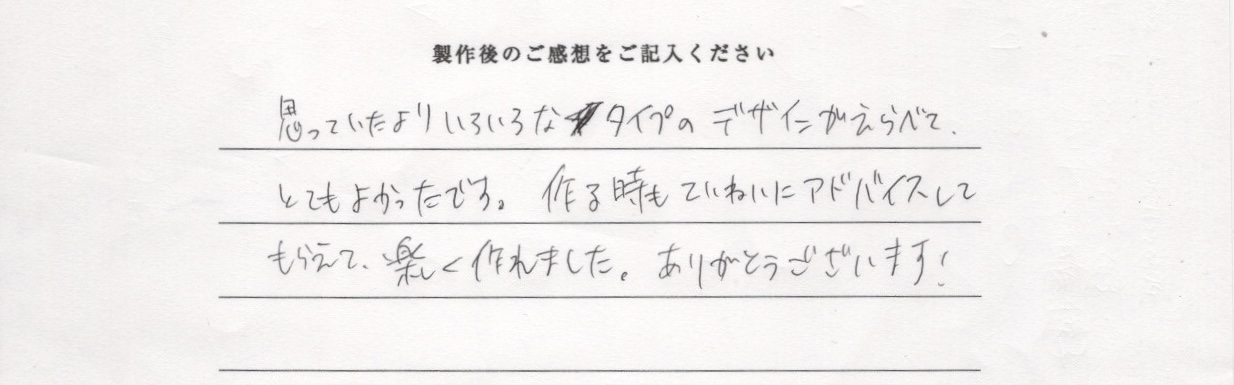 製作後のご感想をご記入ください
思っていたよりいろいろなタイプのデザインがえらべて、
とてもよかったです。作る時もていねいにアドバイスして
もらえて、楽しく作れました。ありがとうございます!